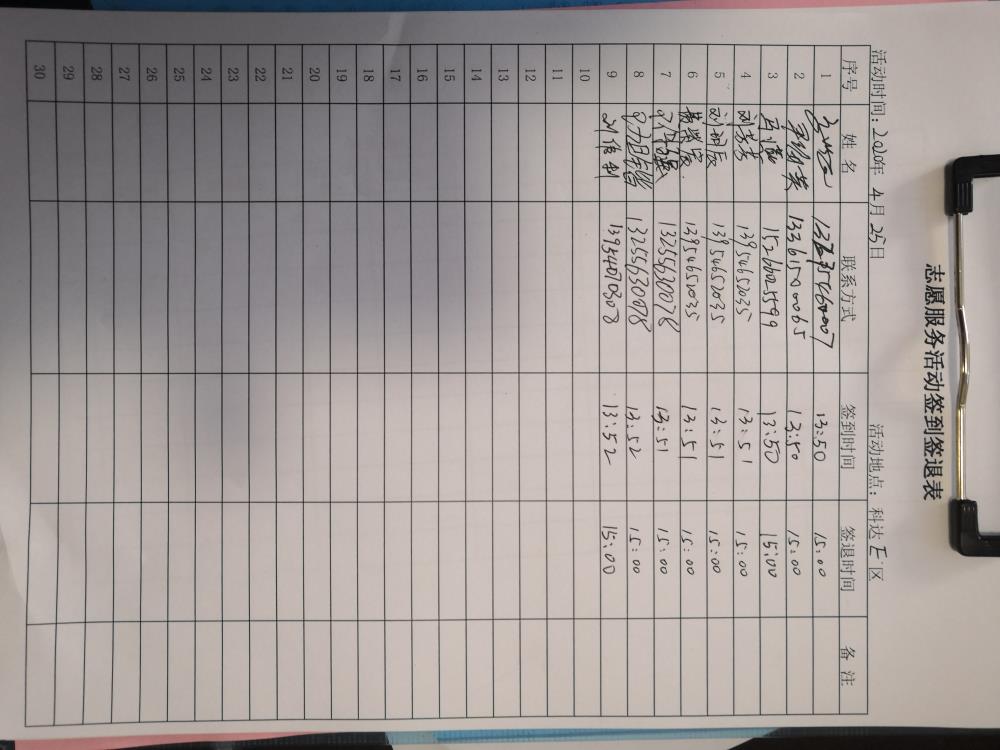 志愿服务活动签到签退表
活动时间：2020年 4月 25日 活动地点：科达 E 区
序号 姓 名 联系方式 签到时间 签退时间 备 注
1 13:50 15:00
2 13361500065 13:50 15:00
3 15266025599 13:50 15:00
4 刘芳芳 13954652035 13:51 15:00
5 刘明辰 13954652035 13:51 15:00
6 黄荣辰 13954652035 13:51 15:00
7 13255630078 13:51 15:00
8 13255630078 13:52 15:00
9 刘倍利 13954070308 13:52 15:00
10
11
12
13
14
15
16
17
18
19
20
21
22
23
24
25
26
27
28
29
30